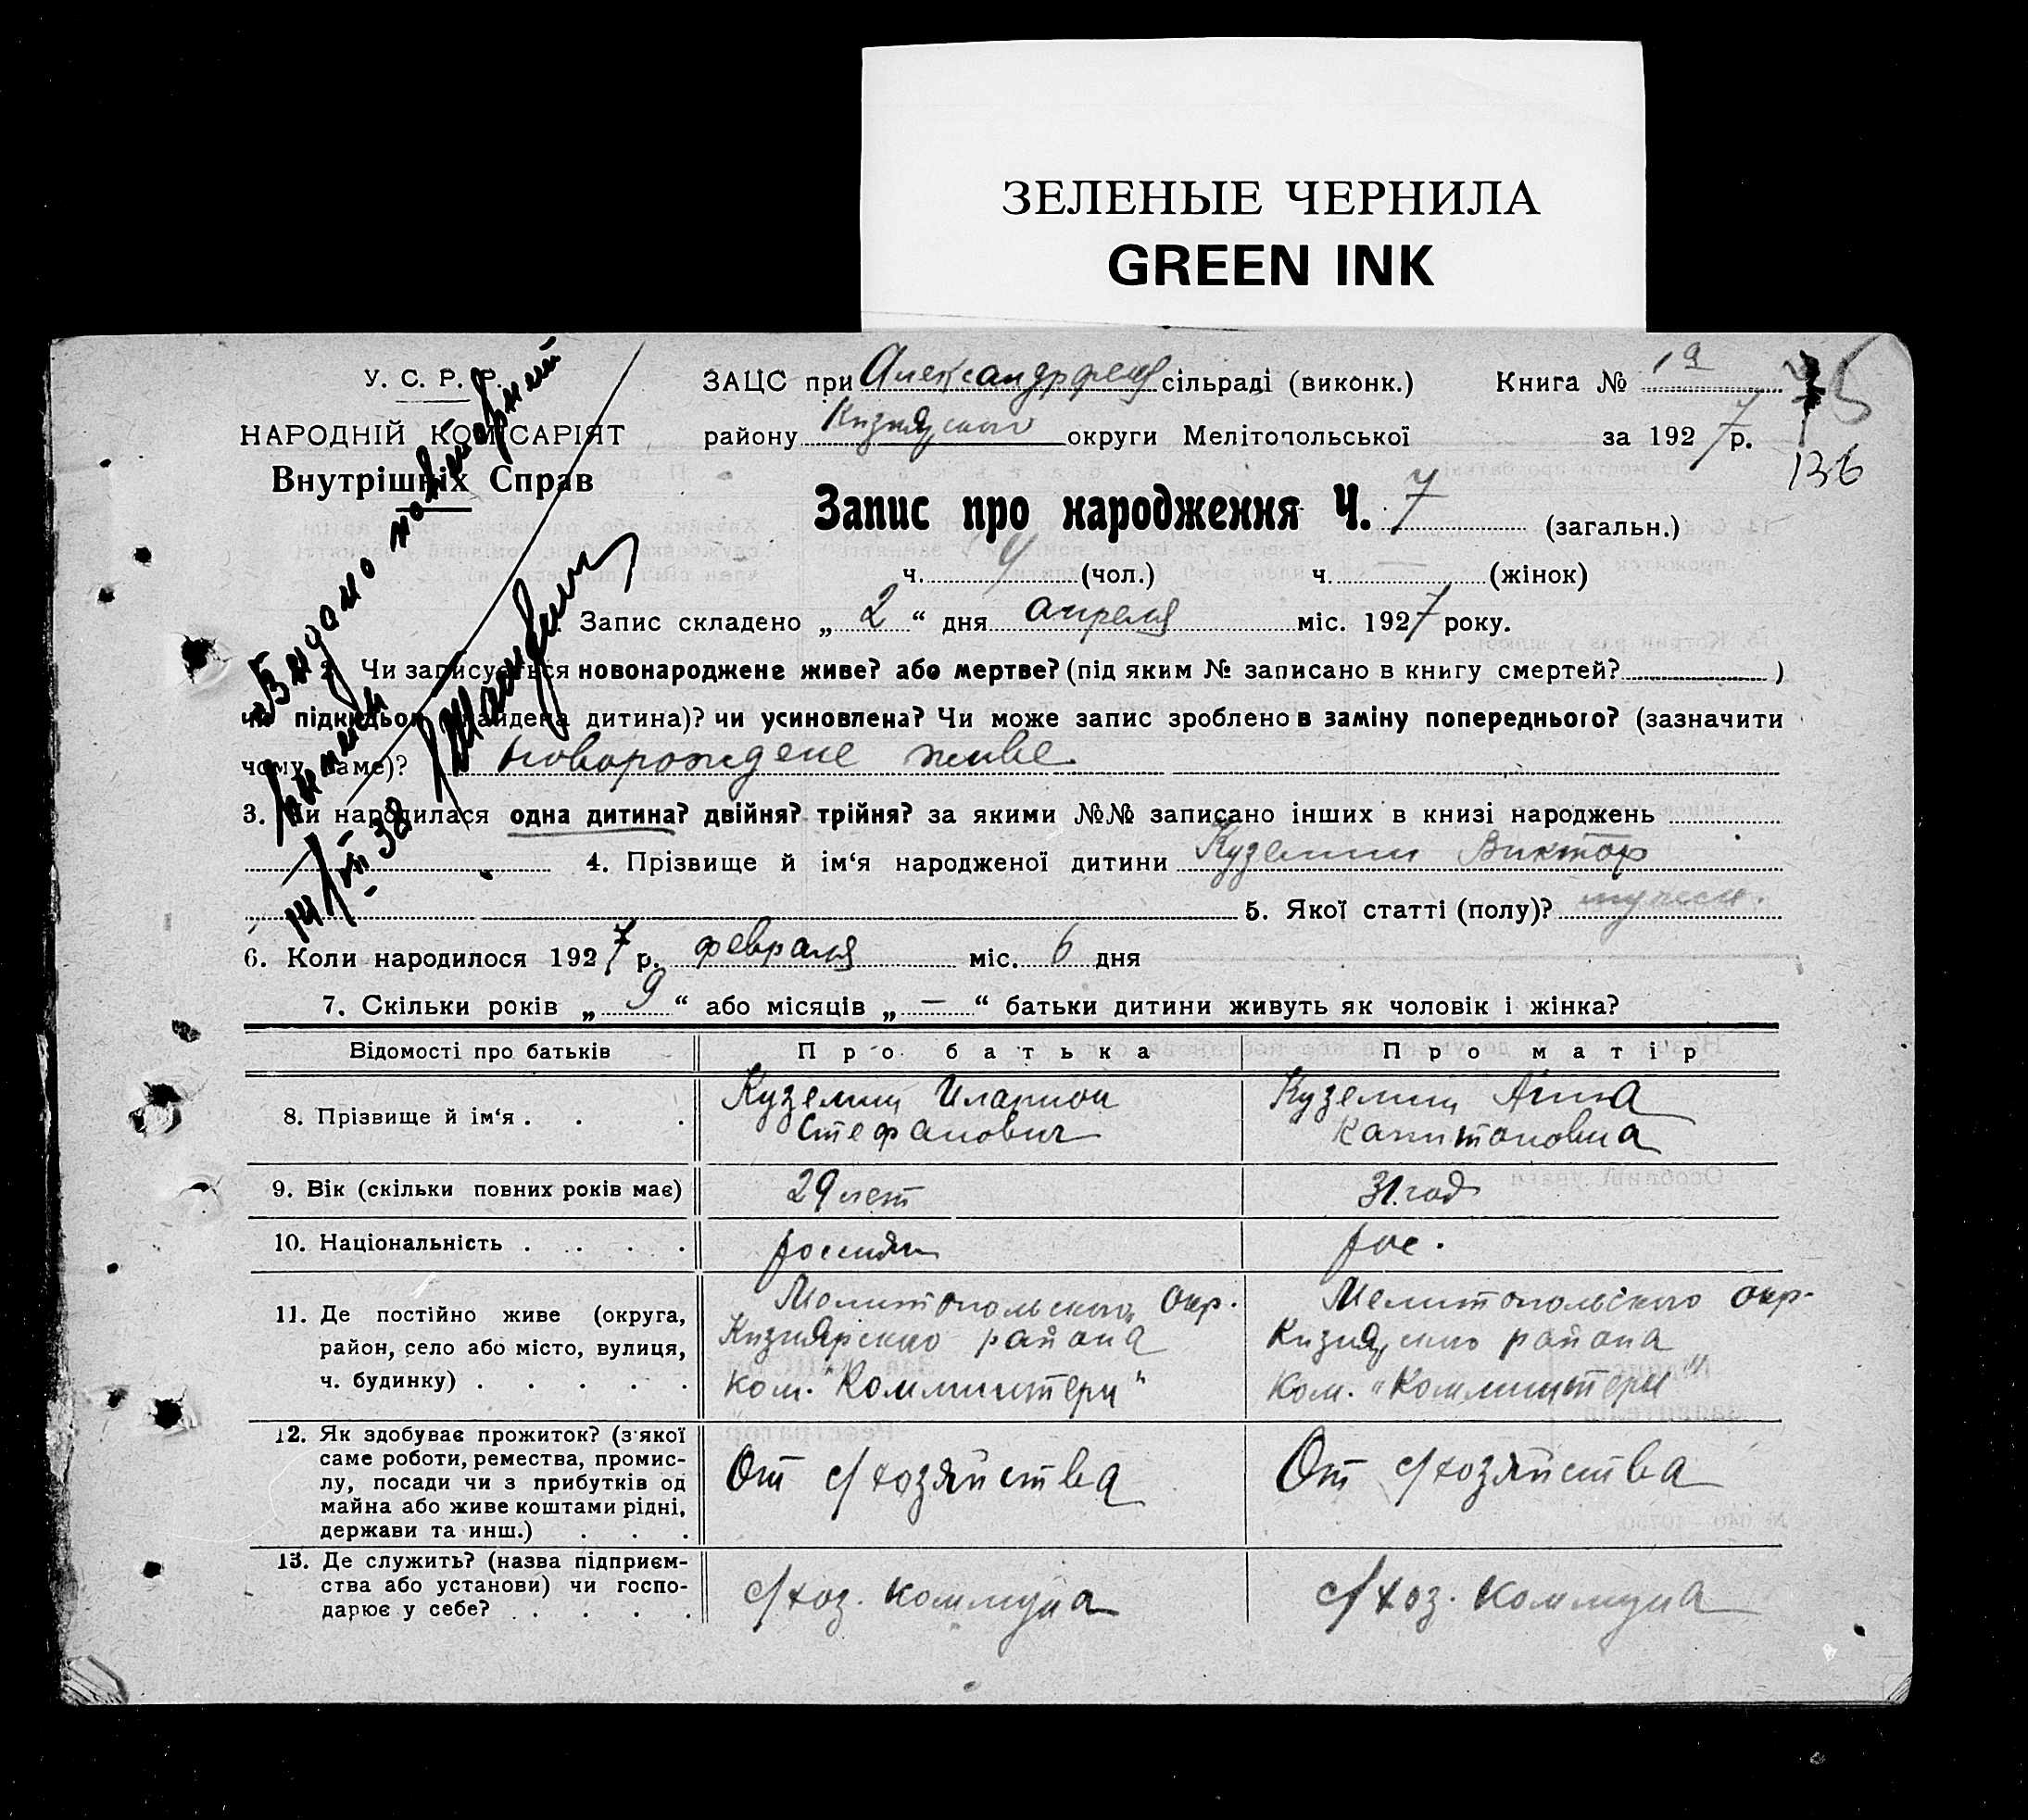 ЗЕЛЕНЫЕ ЧЕРНИЛА
GREEN INK
У. С. Р. Р.
НАРОДНІЙ КОМІСАРІЯТ
Внутрішніх Справ
ЗАЦС при сільраді (виконк.) Книга №
району округи Мелітопольської за 1927 р.
136
Запис про народження Ч. 7 (загальн.)
ч. 4 (чол.) ч. (жінок)
Запис складено „ 2 “ дня апреля міс. 1927 року.
Чи записується новонароджене живе? або мертве? (під яким № записано в книгу смертей? )
чи підкидьок (найдена дитина)? чи усиновлена? Чи може запис зроблено в заміну попереднього? (зазначити
чому саме)? новорождене живе
3. Чи народилася одна дитина? двійня? трійня? за якими №№ записано інших в книзі народжень
4. Прізвище й ім‘я народженої дитини Куземин Виктор
5. Якої статті (полу)? мужеск.
6. Коли народилося 1927 р. февраля міс. 6 дня
7. Скільки років „ 9 “ або місяців „ — “ батьки дитини живуть як чоловік і жінка?
Відомості про батьків Про батька Про матір
8. Прізвище й ім‘я . . . Иларион Стефанович Анна Капитоновна
9. Вік (скільки повних років має) 29 лет 31 год
10. Національність . . . . рос.
11. Де постійно живе (округа, район, село або місто, вулиця, ч. будинку) . . . . . Мелитопольского окр. района ком. "Коминтерн" Мелитопольского окр. района ком. "Коминтерн"
12. Як здобуває прожиток? (з якої саме роботи, ремества, промислу, посади чи з прибутків од майна або живе коштами рідні, держави та инш.) . . . От с/хозяйства От с/хозяйства
13. Де служить? (назва підприємства або установи) чи господарює у себе? . . . . с/хоз. коммуна с/хоз. коммуна